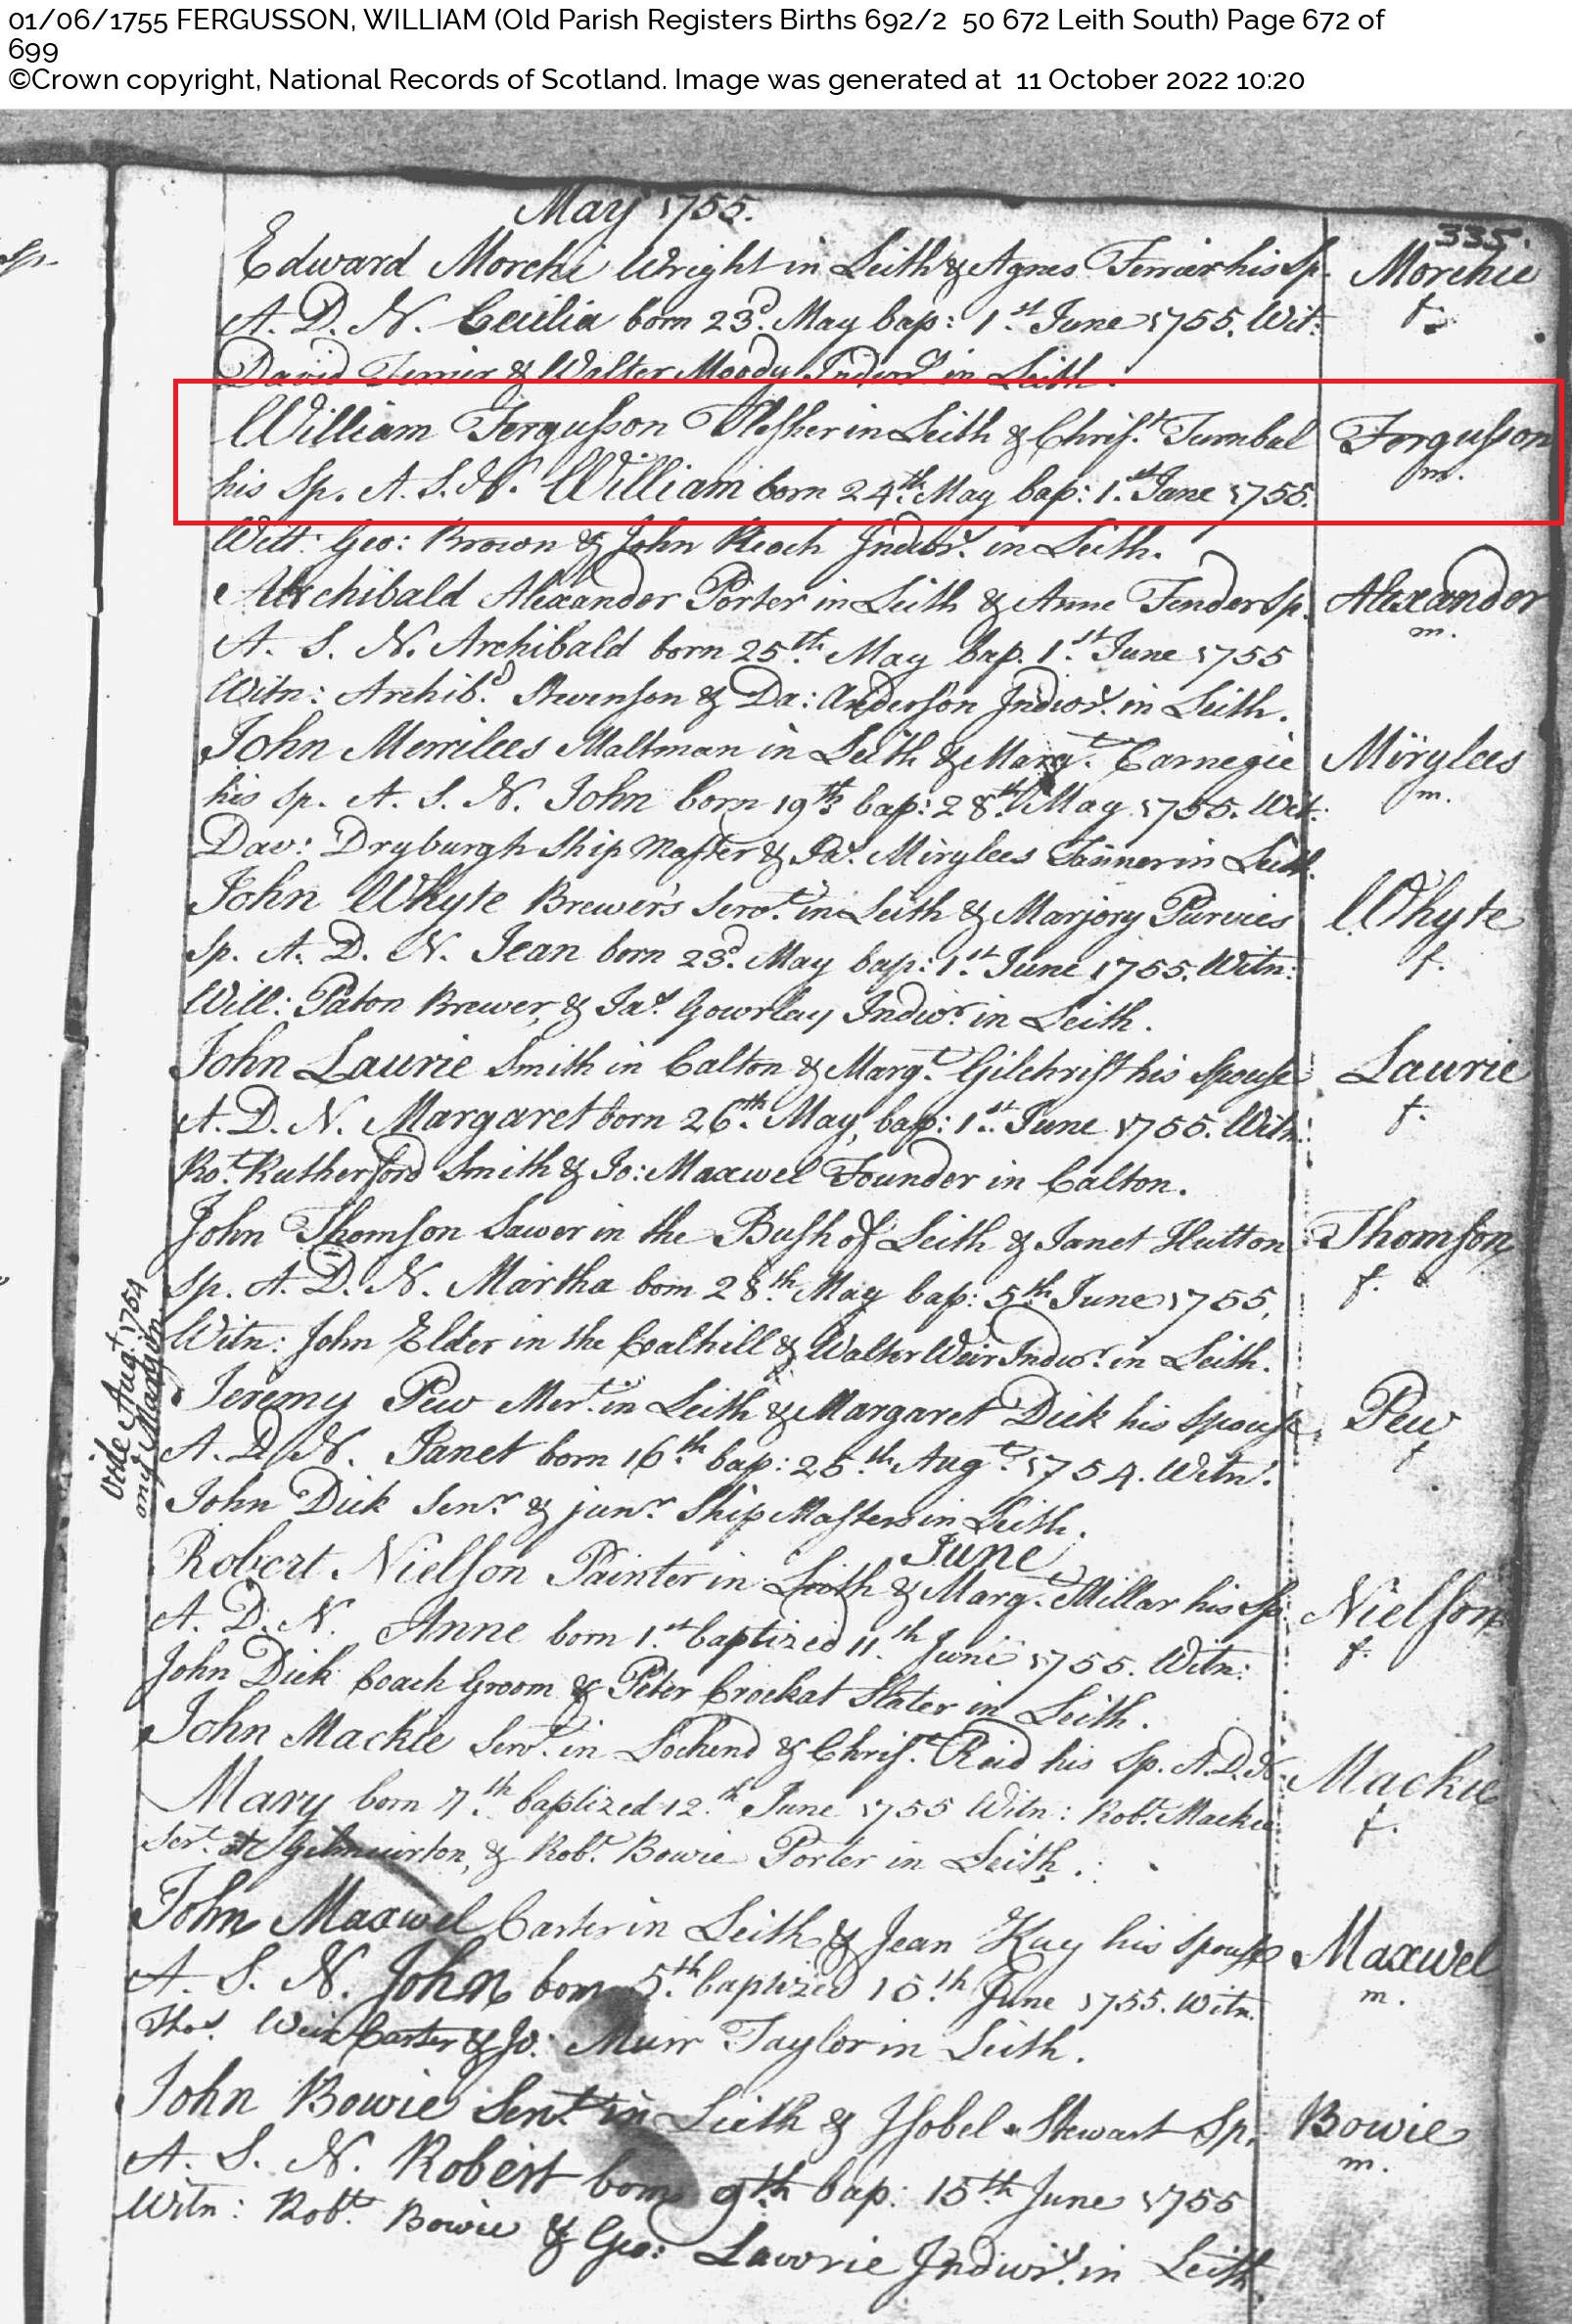 01/06/1755 FERGUSSON, WILLIAM (Old Parish Registers Births 692/2 50 672 Leith South) Page 672 of
699
©Crown copyright, National Records of Scotland. Image was generated at 11 October 2022 10:20
May 1755.
335.
Edward Morchi Wright in Leith & Agnes Ferrier his Sp. Morchie
A. D. N. Cecilia born 23d. May bap: 1st June 1755. Wit: f.
David Ferrier & Walter Moody Indwrs in Leith.
William Fergusson Flesher in Leith & Christ. Turnbul Fergusson
his Sp. A. S. N. William born 24th. May bap: 1st. June 1755. m.
Witt: Geo: Brown & John Keoch Indwrs. in Leith.
Archibald Alexander Porter in Leith & Anne Fender Sp. Alexander
A. S. N. Archibald born 25th. May bap. 1st. June 1755 m.
Witn: Archibd. Stevenson & Da: Anderson Indwrs. in Leith.
John Merrilees Maltman in Leith & Margt. Carnegie Mirylees
his Sp. A. S. N. John born 19th. bap: 28th. May 1755. Wit: m.
Dav: Dryburgh Ship Master & Jas. Mirylees Tanner in Leith.
John Whyte Brewer's Servt. in Leith & Marjory Purvies Whyte
Sp. A. D. N. Jean born 23d. May bap: 1st. June 1755. Witn: f.
Will: Paton Brewer, & Jas. Gowrlay Indwrs. in Leith.
John Laurie Smith in Calton & Margt. Gilchrist his Spouse Laurie
A. D. N. Margaret born 26th. May, bap: 1st. June 1755. Witn: f.
Rot. Rutherford Smith & Jo: Maxwel Founder in Calton.
John Thomson Sawer in the Bush of Leith & Janet Hutton Thomson
Sp. A. D. N. Martha born 28th. May bap: 5th June 1755. f.
Witn: John Elder in the Coalhill & Walter Weir Indwrs. in Leith.
Vide Augt. 1754
on ye Margin
Jeremy Pew Mert. in Leith & Margaret Dick his Spouse Pew
A. D. N. Janet born 16th. bap: 25th. Augt. 1754. Witns. f
John Dick Senr. & junr. Ship Masters in Leith.
June
Robert Nielson Painter in Leith & Margt. Millar his Sp. Nielson
A. D. N. Anne born 1st. baptized 11th. June 1755. Witn: f.
John Dick Coach Groom & Peter Crockat Slater in Leith.
John Mackie Servt. in Lochend & Christ. Reid his Sp. A. D. N. Mackie
Mary born 7th. baptized 12th June 1755 Witn: Robt. Mackie f.
Servt. at Gilmuirton, & Robt. Bowie Porter in Leith.
John Maxwel Carter in Leith & Jean Kay his Spouse Maxwel
A. S. N. John born 5th. baptized 15th. June 1755. Witn. m.
Thos. Weir Carter & Jo: Muir Taylor in Leith.
John Bowie Servt. in Leith & Isobel Stewart Sp. Bowie
A. S. N. Robert born 9th bap: 15th June 1755 m.
Witn: Robt. Bowie & Geo: Lawrie Indwrs. in Leith